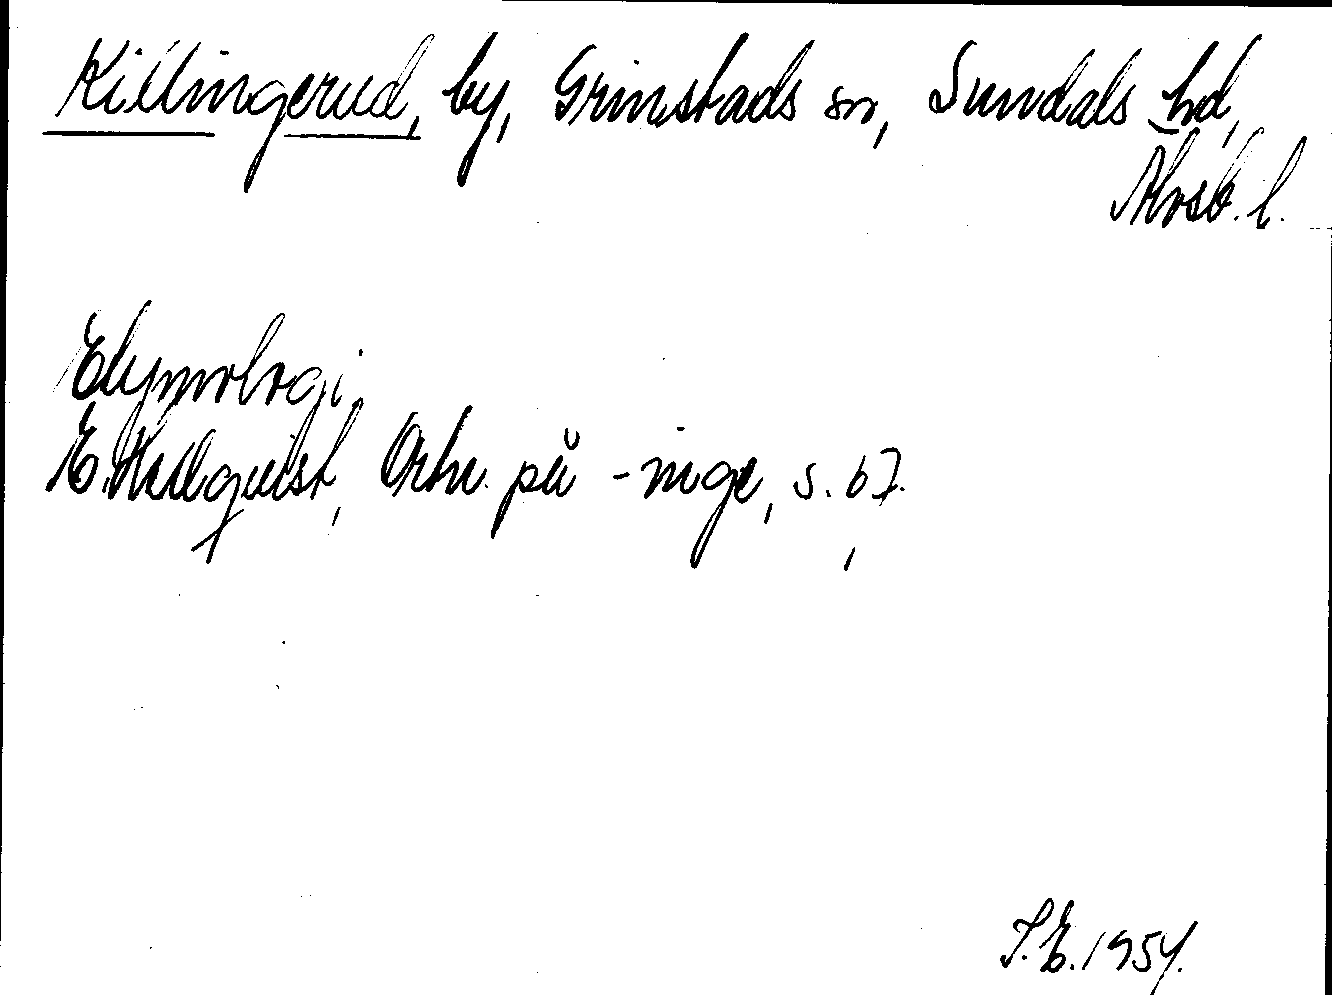 Killingerud, by, Grinstads sn, Sundals hd,
Älvsb. l.
Etymologi
E. Hellquist, Ortn. på -inge, s. 67.
S.E. 1954.